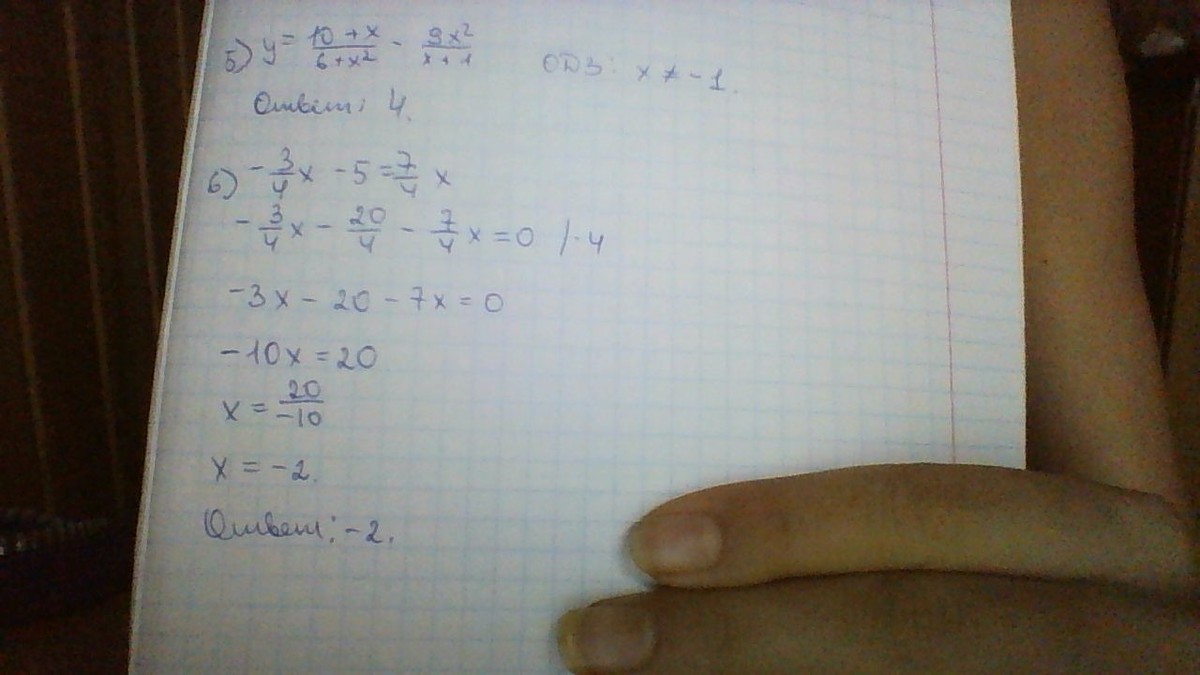 5) y = (10+x)/(6+x²) - 9x²/(x+1) ОДЗ: x ≠ -1.
Ответ: 4.
6) -3/4 x - 5 = 7/4 x
-3/4 x - 20/4 - 7/4 x = 0 /·4
-3x - 20 - 7x = 0
-10x = 20
x = 20/-10
x = -2.
Ответ: -2.